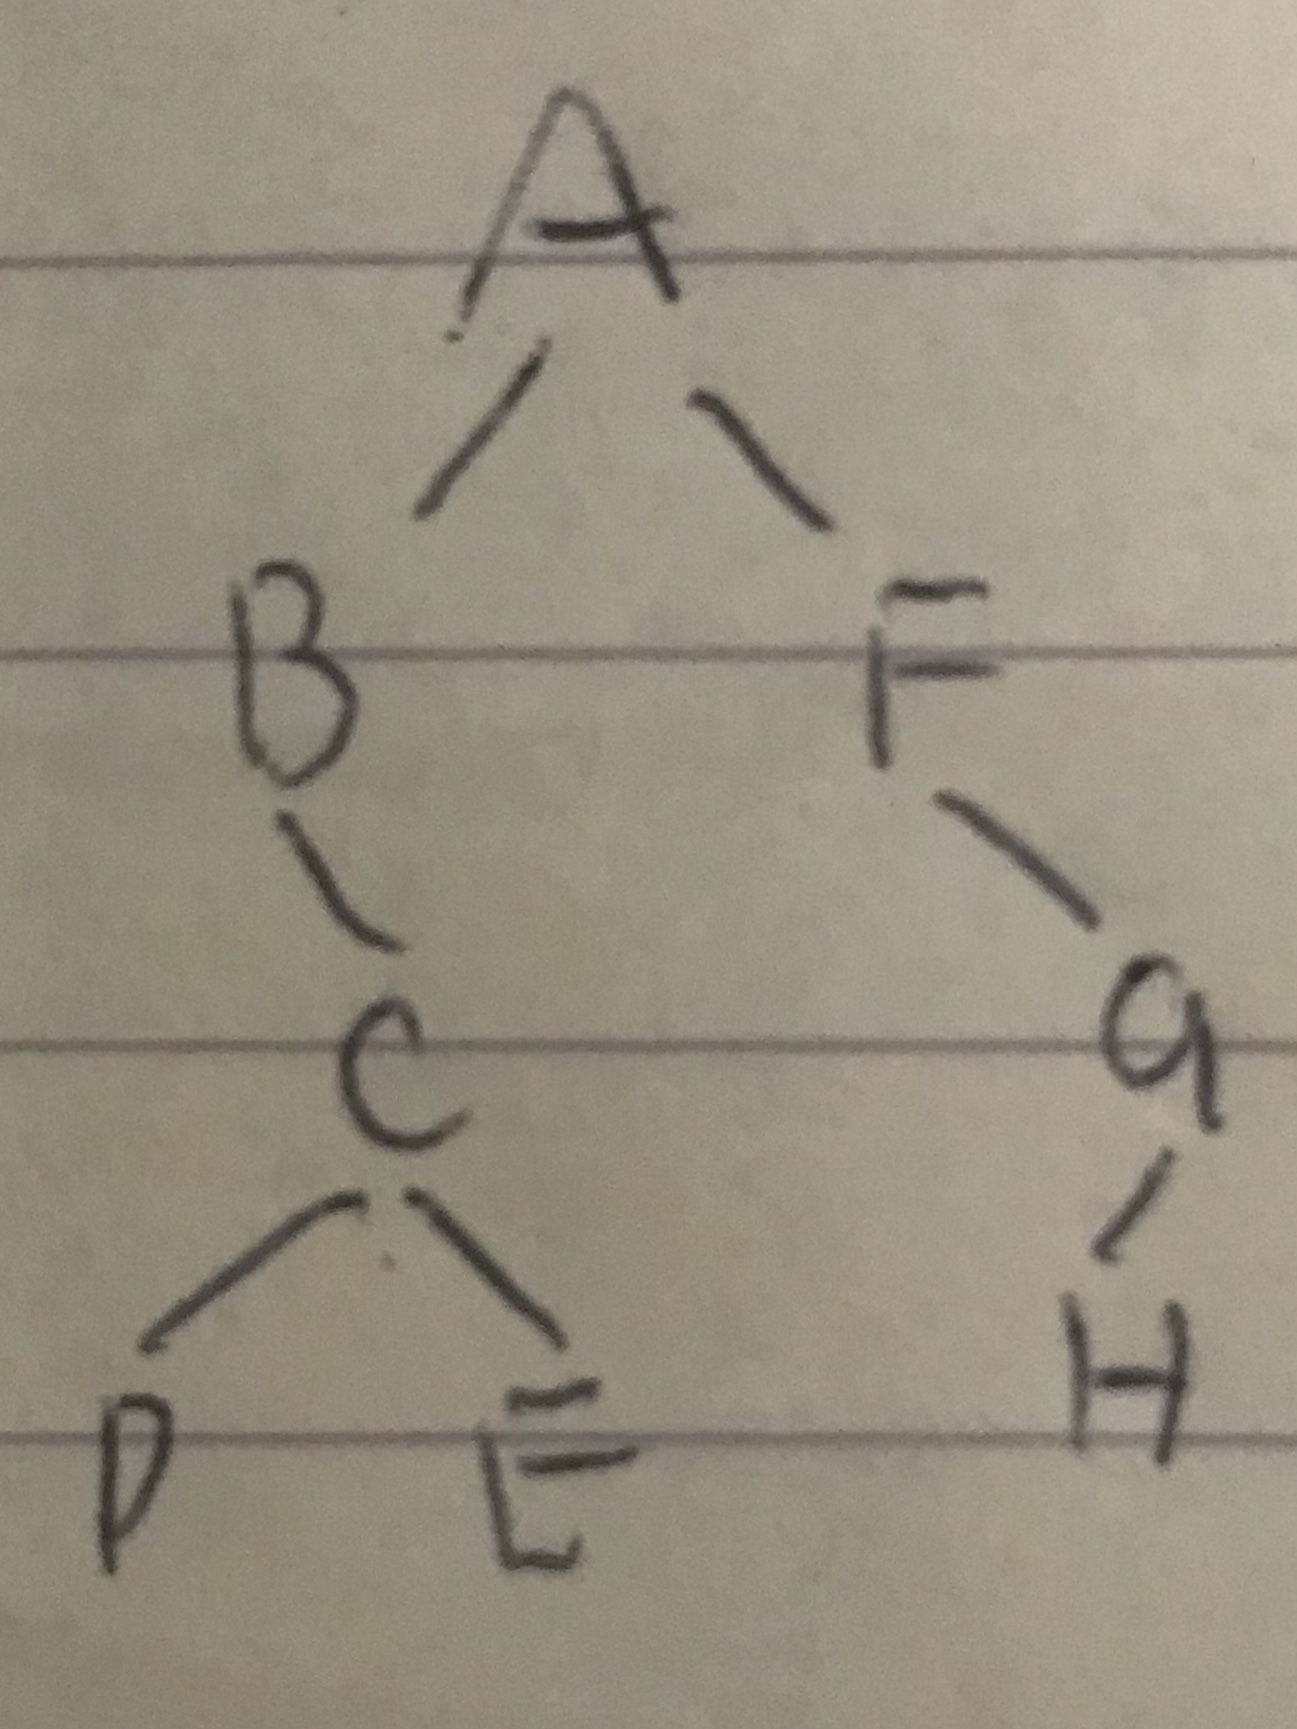 A
B F
C G
D E H